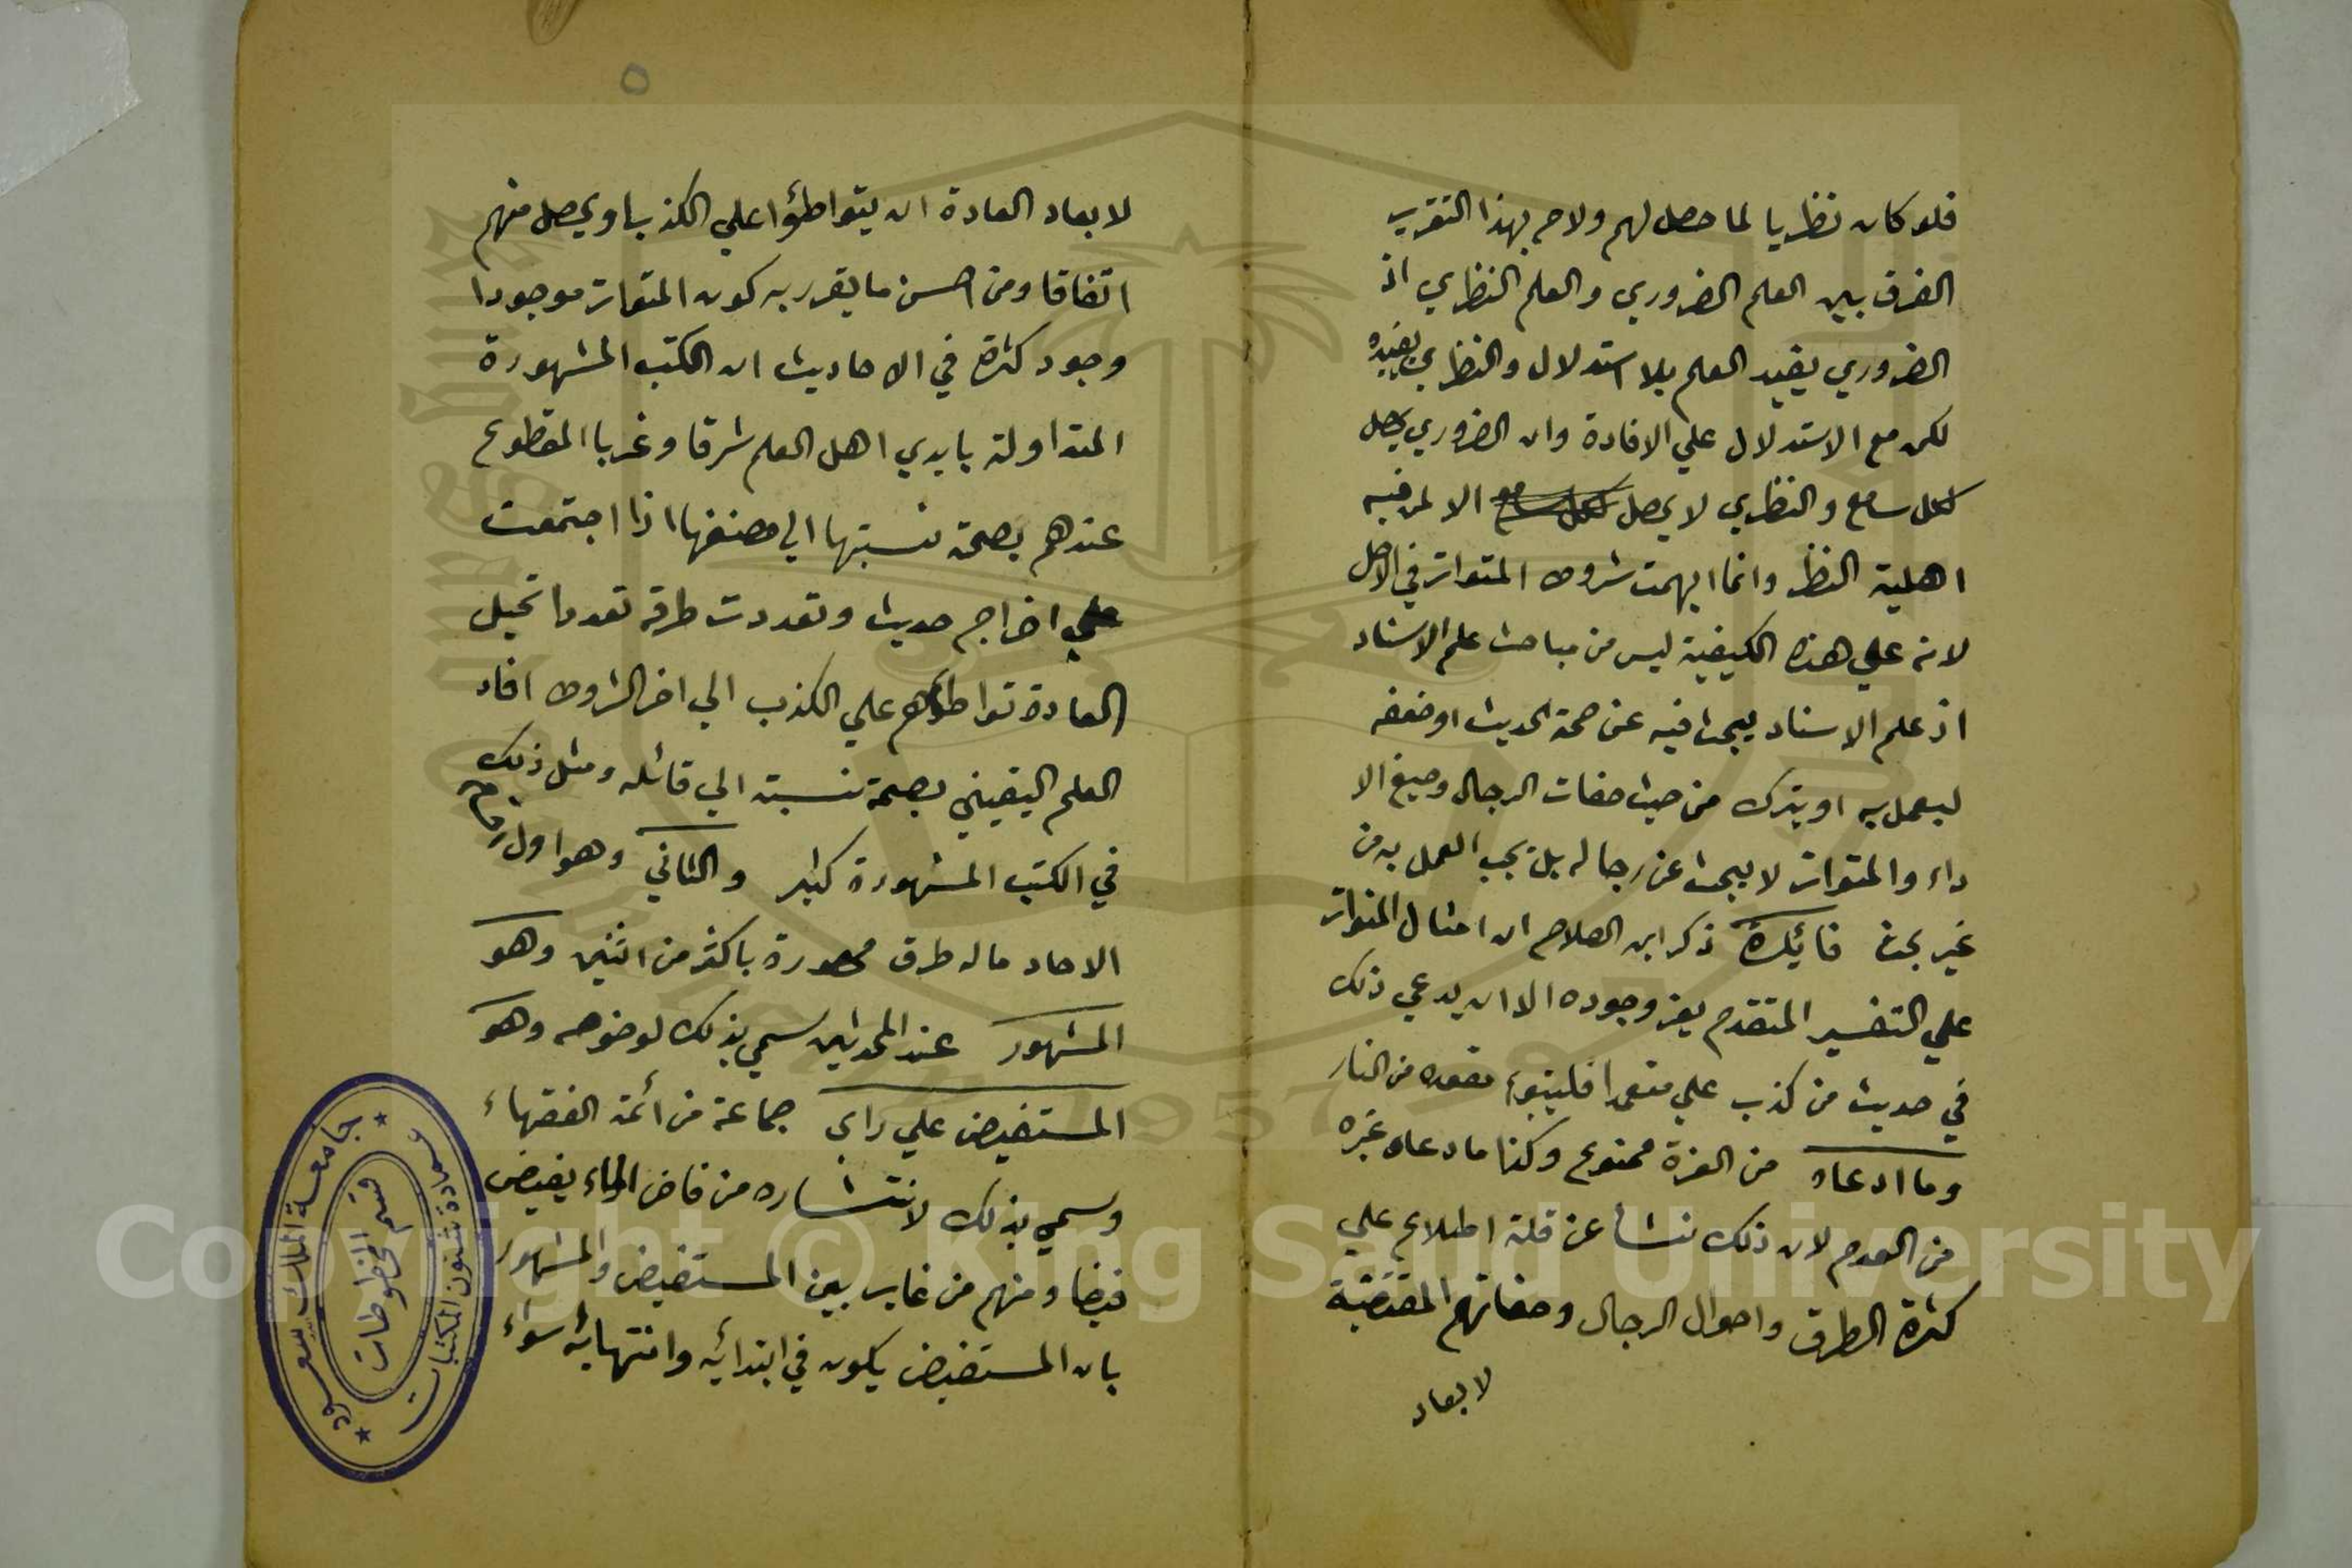 فلو كان نظريا لما حصل لهم ولاح بهذا التقرير
الفرق بين العلم الضروري والعلم النظري اذ
الضروري يفيد العلم بلا استدلال والنظري يفيده
لكن مع الاستدلال علي الافادة وان الضروري يحصل
لكل سامع والنظري لا يحصل لكل سامع الا لمن فيه
اهلية النظر وانما ابهمت شروط المتواتر في الاصل
لانه علي هذه الكيفية ليس من مباحث علم الاسناد
اذ علم الاسناد يبحث فيه عن صحة الحديث او ضعفه
ليعمل به او يترك من حيث صفات الرجال وصيغ الا
داء والمتواتر لا يبحث عن رجاله بل يجب العمل به من
غير بحث فائدة ذكر ابن الصلاح ان امثال المتواتر
علي التفسير المتقدم يعز وجوده الا ان يدعي ذلك
في حديث من كذب علي متعمدا فليتبوء مقعده من النار
وما ادعاه من العزة ممنوع وكذا ما ادعاه غيره
من العدم لان ذلك نشأ عن قلة اطلاع علي
كثرة الطرق واحوال الرجال وصفاتهم المقتضية
لابعاد
لابعاد العادة ان يتواطؤا علي الكذب او يحصل منهم
اتفاقا ومن احسن ما يقرر به كون المتواتر موجودا
وجود كثرة في الاحاديث ان الكتب المشهورة
المتداولة بايدي اهل العلم شرقا وغربا المقطوع
عندهم بصحة نسبتها الي مصنفها اذا اجتمعت
علي اخراج حديث وتعددت طرقه تعددا تحيل
العادة تواطؤهم علي الكذب الي اخر الشروط افاد
العلم اليقيني بصحة نسبته الي قائله ومثل ذلك
في الكتب المشهورة كثير والثاني وهو اول
الاحاد ماله طرق محصورة باكثر من اثنين وهو
المشهور عند المحدثين سمي بذلك لوضوحه وهو
المستفيض علي راي جماعة من ائمة الفقهاء
وسمي بذلك لانتشاره من فاض الماء يفيض
فيضا ومنهم من غاير بين المستفيض والمشهور
بان المستفيض يكون في ابتدائه وانتهائه سواء
جامعة الملك سعود
عمادة شئون المكتبات
قسم المخطوطات
Copyright © King Saud University
1957